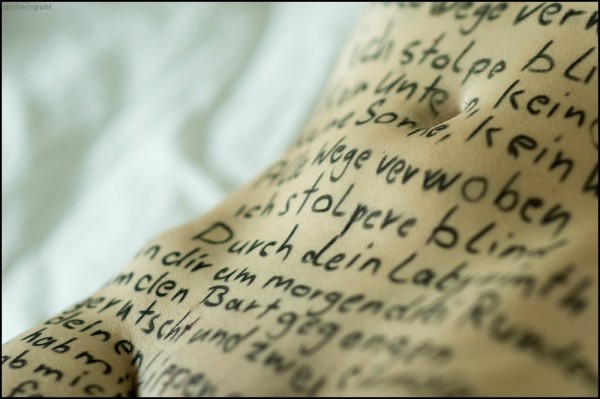 andreaspuhl
Wege verw
ich stolpe bli
unten, kein
Sonne, kein
Alle Wege verwoben
ich stolpere blind
Durch dein Labyrinth
dir um morgen drei Runden
um den Bart gegangen
und zwei
deinen Lippen
hab mi
hab mich